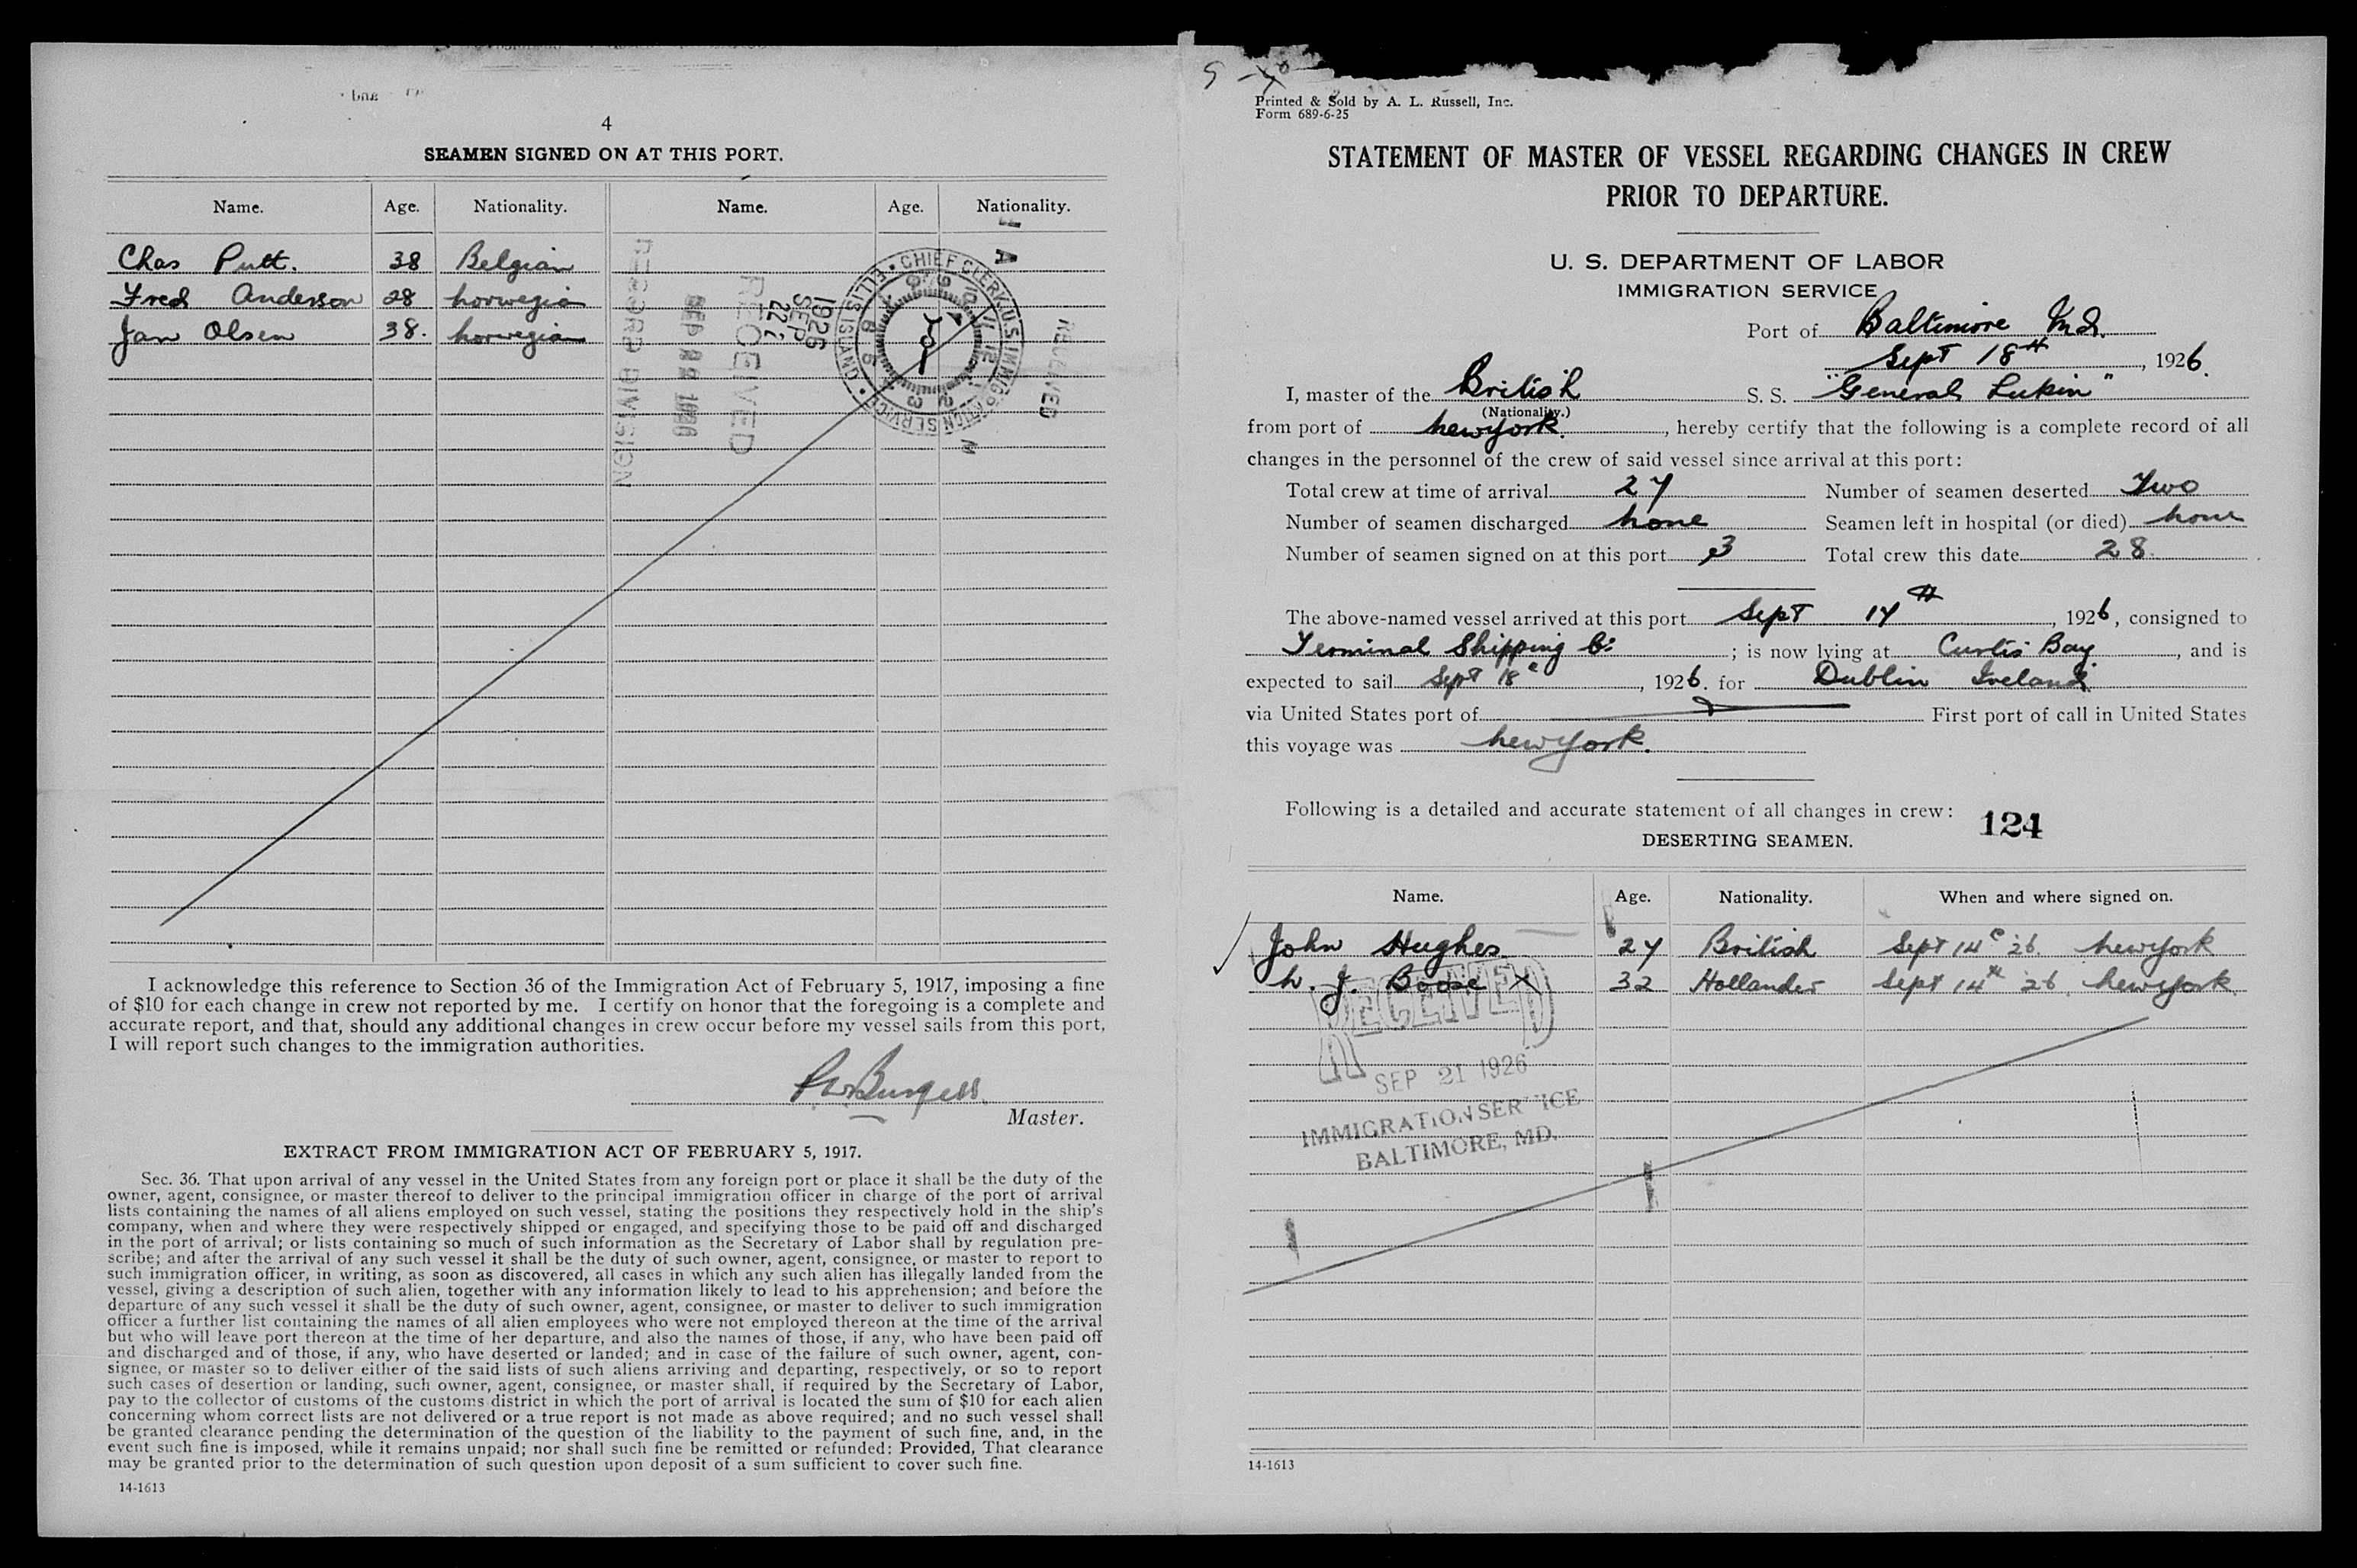 4
SEAMEN SIGNED ON AT THIS PORT.
Name. Age. Nationality. Name. Age. Nationality.
Chas Putt. 38 Belgian
Fred Anderson 28 norwegian
Jan Olsen 38. norwegian
RECORD DIVISION
RECEIVED
1926
SEP
22
CHIEF CLERK, U.S. IMMIGRATION SERVICE • ELLIS ISLAND •
RECEIVED
I acknowledge this reference to Section 36 of the Immigration Act of February 5, 1917, imposing a fine
of $10 for each change in crew not reported by me. I certify on honor that the foregoing is a complete and
accurate report, and that, should any additional changes in crew occur before my vessel sails from this port,
I will report such changes to the immigration authorities.
Burgess.
Master.
EXTRACT FROM IMMIGRATION ACT OF FEBRUARY 5, 1917.
Sec. 36. That upon arrival of any vessel in the United States from any foreign port or place it shall be the duty of the
owner, agent, consignee, or master thereof to deliver to the principal immigration officer in charge of the port of arrival
lists containing the names of all aliens employed on such vessel, stating the positions they respectively hold in the ship's
company, when and where they were respectively shipped or engaged, and specifying those to be paid off and discharged
in the port of arrival; or lists containing so much of such information as the Secretary of Labor shall by regulation pre-
scribe; and after the arrival of any such vessel it shall be the duty of such owner, agent, consignee, or master to report to
such immigration officer, in writing, as soon as discovered, all cases in which any such alien has illegally landed from the
vessel, giving a description of such alien, together with any information likely to lead to his apprehension; and before the
departure of any such vessel it shall be the duty of such owner, agent, consignee, or master to deliver to such immigration
officer a further list containing the names of all alien employees who were not employed thereon at the time of the arrival
but who will leave port thereon at the time of her departure, and also the names of those, if any, who have been paid off
and discharged and of those, if any, who have deserted or landed; and in case of the failure of such owner, agent, con-
signee, or master so to deliver either of the said lists of such aliens arriving and departing, respectively, or so to report
such cases of desertion or landing, such owner, agent, consignee, or master shall, if required by the Secretary of Labor,
pay to the collector of customs of the customs district in which the port of arrival is located the sum of $10 for each alien
concerning whom correct lists are not delivered or a true report is not made as above required; and no such vessel shall
be granted clearance pending the determination of the question of the liability to the payment of such fine, and, in the
event such fine is imposed, while it remains unpaid; nor shall such fine be remitted or refunded: Provided, That clearance
may be granted prior to the determination of such question upon deposit of a sum sufficient to cover such fine.
14-1613
Printed & Sold by A. L. Russell, Inc.
Form 689-6-25
STATEMENT OF MASTER OF VESSEL REGARDING CHANGES IN CREW
PRIOR TO DEPARTURE.
U. S. DEPARTMENT OF LABOR
IMMIGRATION SERVICE
Port of Baltimore Md.
Sept 18th, 1926.
I, master of the British S. S. "General Lukin"
(Nationality.)
from port of new york., hereby certify that the following is a complete record of all
changes in the personnel of the crew of said vessel since arrival at this port:
Total crew at time of arrival 27 Number of seamen deserted Two
Number of seamen discharged none Seamen left in hospital (or died) none
Number of seamen signed on at this port 3 Total crew this date 28.
The above-named vessel arrived at this port Sept 17th, 1926, consigned to
Terminal Shipping Co; is now lying at Curtis Bay, and is
expected to sail Sept 18th, 1926. for Dublin Ireland
via United States port of First port of call in United States
this voyage was new york.
Following is a detailed and accurate statement of all changes in crew: 124
DESERTING SEAMEN.
Name. Age. Nationality. When and where signed on.
John Hughes 27 British Sept 14th 26. new york
W. J. Boose X 32 Hollander Sept 14th 26. new york
RECEIVED
SEP 21 1926
IMMIGRATION SERVICE
BALTIMORE, MD.
14-1613